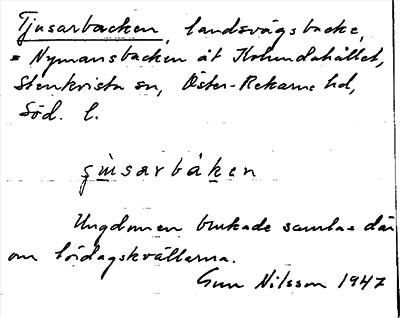 Tjusarbacken, landsvägsbacke,
= Nymansbacken åt Kohundahållet,
Stenkvista sn, Öster-Rekarne hd,
Söd. l.
Ungdomen brukade samlas där
om lördagskvällarna.
Gun Nilsson 1947